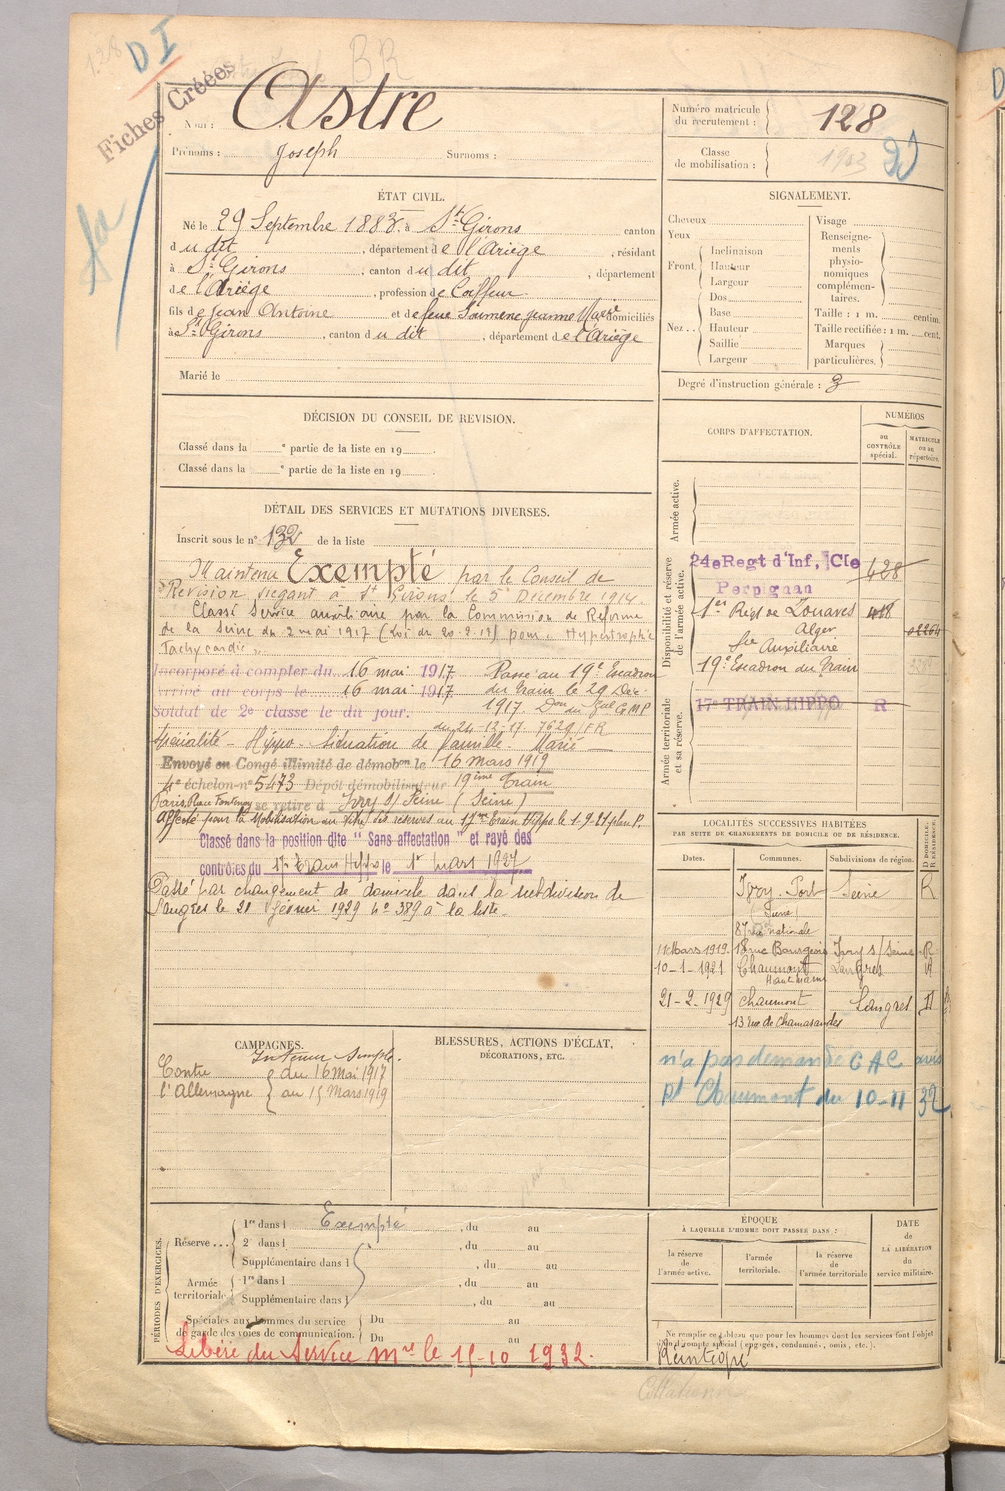 128
DI
BR
Fiches Créées
Nom : Astre
Prénoms : Joseph Surnoms :
Numéro matricule du recrutement : 128
Classe de mobilisation : 1903
ÉTAT CIVIL.
Né le 29 Septembre 1883 à St Girons canton
du dit, département de l'Ariège, résidant
à St Girons, canton du dit, département
de l'Ariège, profession de Coiffeur
fils de Jean Antoine et de feue Soumene Jeanne Marie domiciliés
à St Girons, canton du dit, département de l'Ariège
Marié le
SIGNALEMENT.
Cheveux
Yeux
Front. Inclinaison
Hauteur
Largeur
Nez.. Dos
Base
Hauteur
Saillie
Largeur
Visage
Renseigne-
ments
physio-
nomiques
complémen-
taires.
Taille : 1 m. centim.
Taille rectifiée : 1 m. cent.
Marques
particulières.
Degré d'instruction générale : 3
DÉCISION DU CONSEIL DE REVISION.
Classé dans la e partie de la liste en 19
Classé dans la e partie de la liste en 19
DÉTAIL DES SERVICES ET MUTATIONS DIVERSES.
Inscrit sous le n° 132 de la liste
Maintenu Exempté par le Conseil de
Revision siegant à St Girons le 5 Décembre 1914.
Classé Service auxiliaire par la Commission de Réforme
de la Seine du 2 mai 1917 (Loi du 20-2-17) pour : Hypertrophie
Tachycardie
Incorporé à compter du 16 mai 1917. Passé au 19e Escadron
Arrivé au corps le 16 mai 1917 du Train le 29 Déc.
Soldat de 2e classe le du jour. 1917 Don du Gal GMP
du 24-12-17 7629/FR
Spécialité - Hippo - Situation de Famille - Marié
Envoyé en Congé illimité de démobon le 16 mars 1919
4e échelon n° 5473 Dépôt démobilisateur 19ème Train
Paris Place Fontenoy se retire à Ivry s/ Seine (Seine)
Affecté pour la Mobilisation au réserves au 17me Train Hippo le 1-7-21 plan P.
Classé dans la position dite "Sans affectation" et rayé des
contrôles du 17e Train Hippo le 1er mars 1927
Passé par changement de domicile dans la subdivision de
Langres le 21 février 1929 n° 389 à la liste.
CORPS D'AFFECTATION.
NUMÉROS
au CONTRÔLE spécial.
MATRICULE ou au répertoire.
Armée active.
Disponibilité et réserve de l'armée active.
24e Regt d'Inf, Cie 428
Perpignan
1er Régt de Zouaves 418
Alger 02264
Sce Auxiliaire
19e Escadron du Train
Armée territoriale et sa réserve.
17e TRAIN HIPPO R
LOCALITÉS SUCCESSIVES HABITÉES
PAR SUITE DE CHANGEMENTS DE DOMICILE OU DE RÉSIDENCE.
Dates. Communes. Subdivisions de région. D DOMICILE. R RÉSIDENCE.
Ivry-Port Seine R
(Seine)
87 nationale
11 Mars 1919. 18 rue Bourgeois Ivry s/ Seine R
10-1-1921 Chaumont Langres R
Haut Marne
21-2-1929 Chaumont Langres D
13 rue de Chamarandes
n'a pas demandé CAC avis
Pt Chaumont du 10-11 32
CAMPAGNES.
Intérieur Simple.
Contre l'Allemagne du 16 Mai 1917
au 15 Mars 1919
BLESSURES, ACTIONS D'ÉCLAT,
DÉCORATIONS, ETC.
PÉRIODES D'EXERCICES.
Réserve... 1re dans l Exempté, du au
2e dans l, du au
Supplémentaire dans l, du au
Armée territoriale 1re dans l, du au
Supplémentaire dans l, du au
Spéciales aux hommes du service de garde des voies de communication. Du au
Du au
Libéré du Service Mre le 15-10 1932.
ÉPOQUE
À LAQUELLE L'HOMME DOIT PASSER DANS :
la réserve de l'armée active.
l'armée territoriale.
la réserve de l'armée territoriale
DATE DE LA LIBÉRATION du service militaire.
Ne remplir ce tableau que pour les hommes dont les services font l'objet
d'un compte spécial (engagés, condamné, omis, etc.).
Réintégré